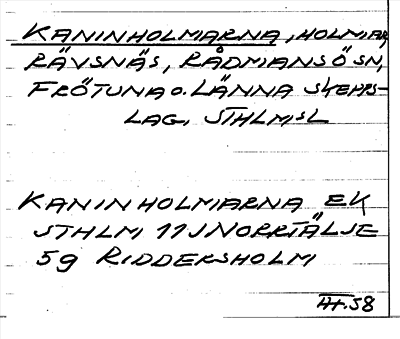 KANINHOLMARNA, HOLMAR,
RÄVSNÄS, RÅDMANSÖ SN,
FRÖTUNA O. LÄNNA SKEPPS-
LAG, STHLMSL
KANINHOLMARNA EK
STHLM 11J NORRTÄLJE
5g RIDDERSHOLM
58